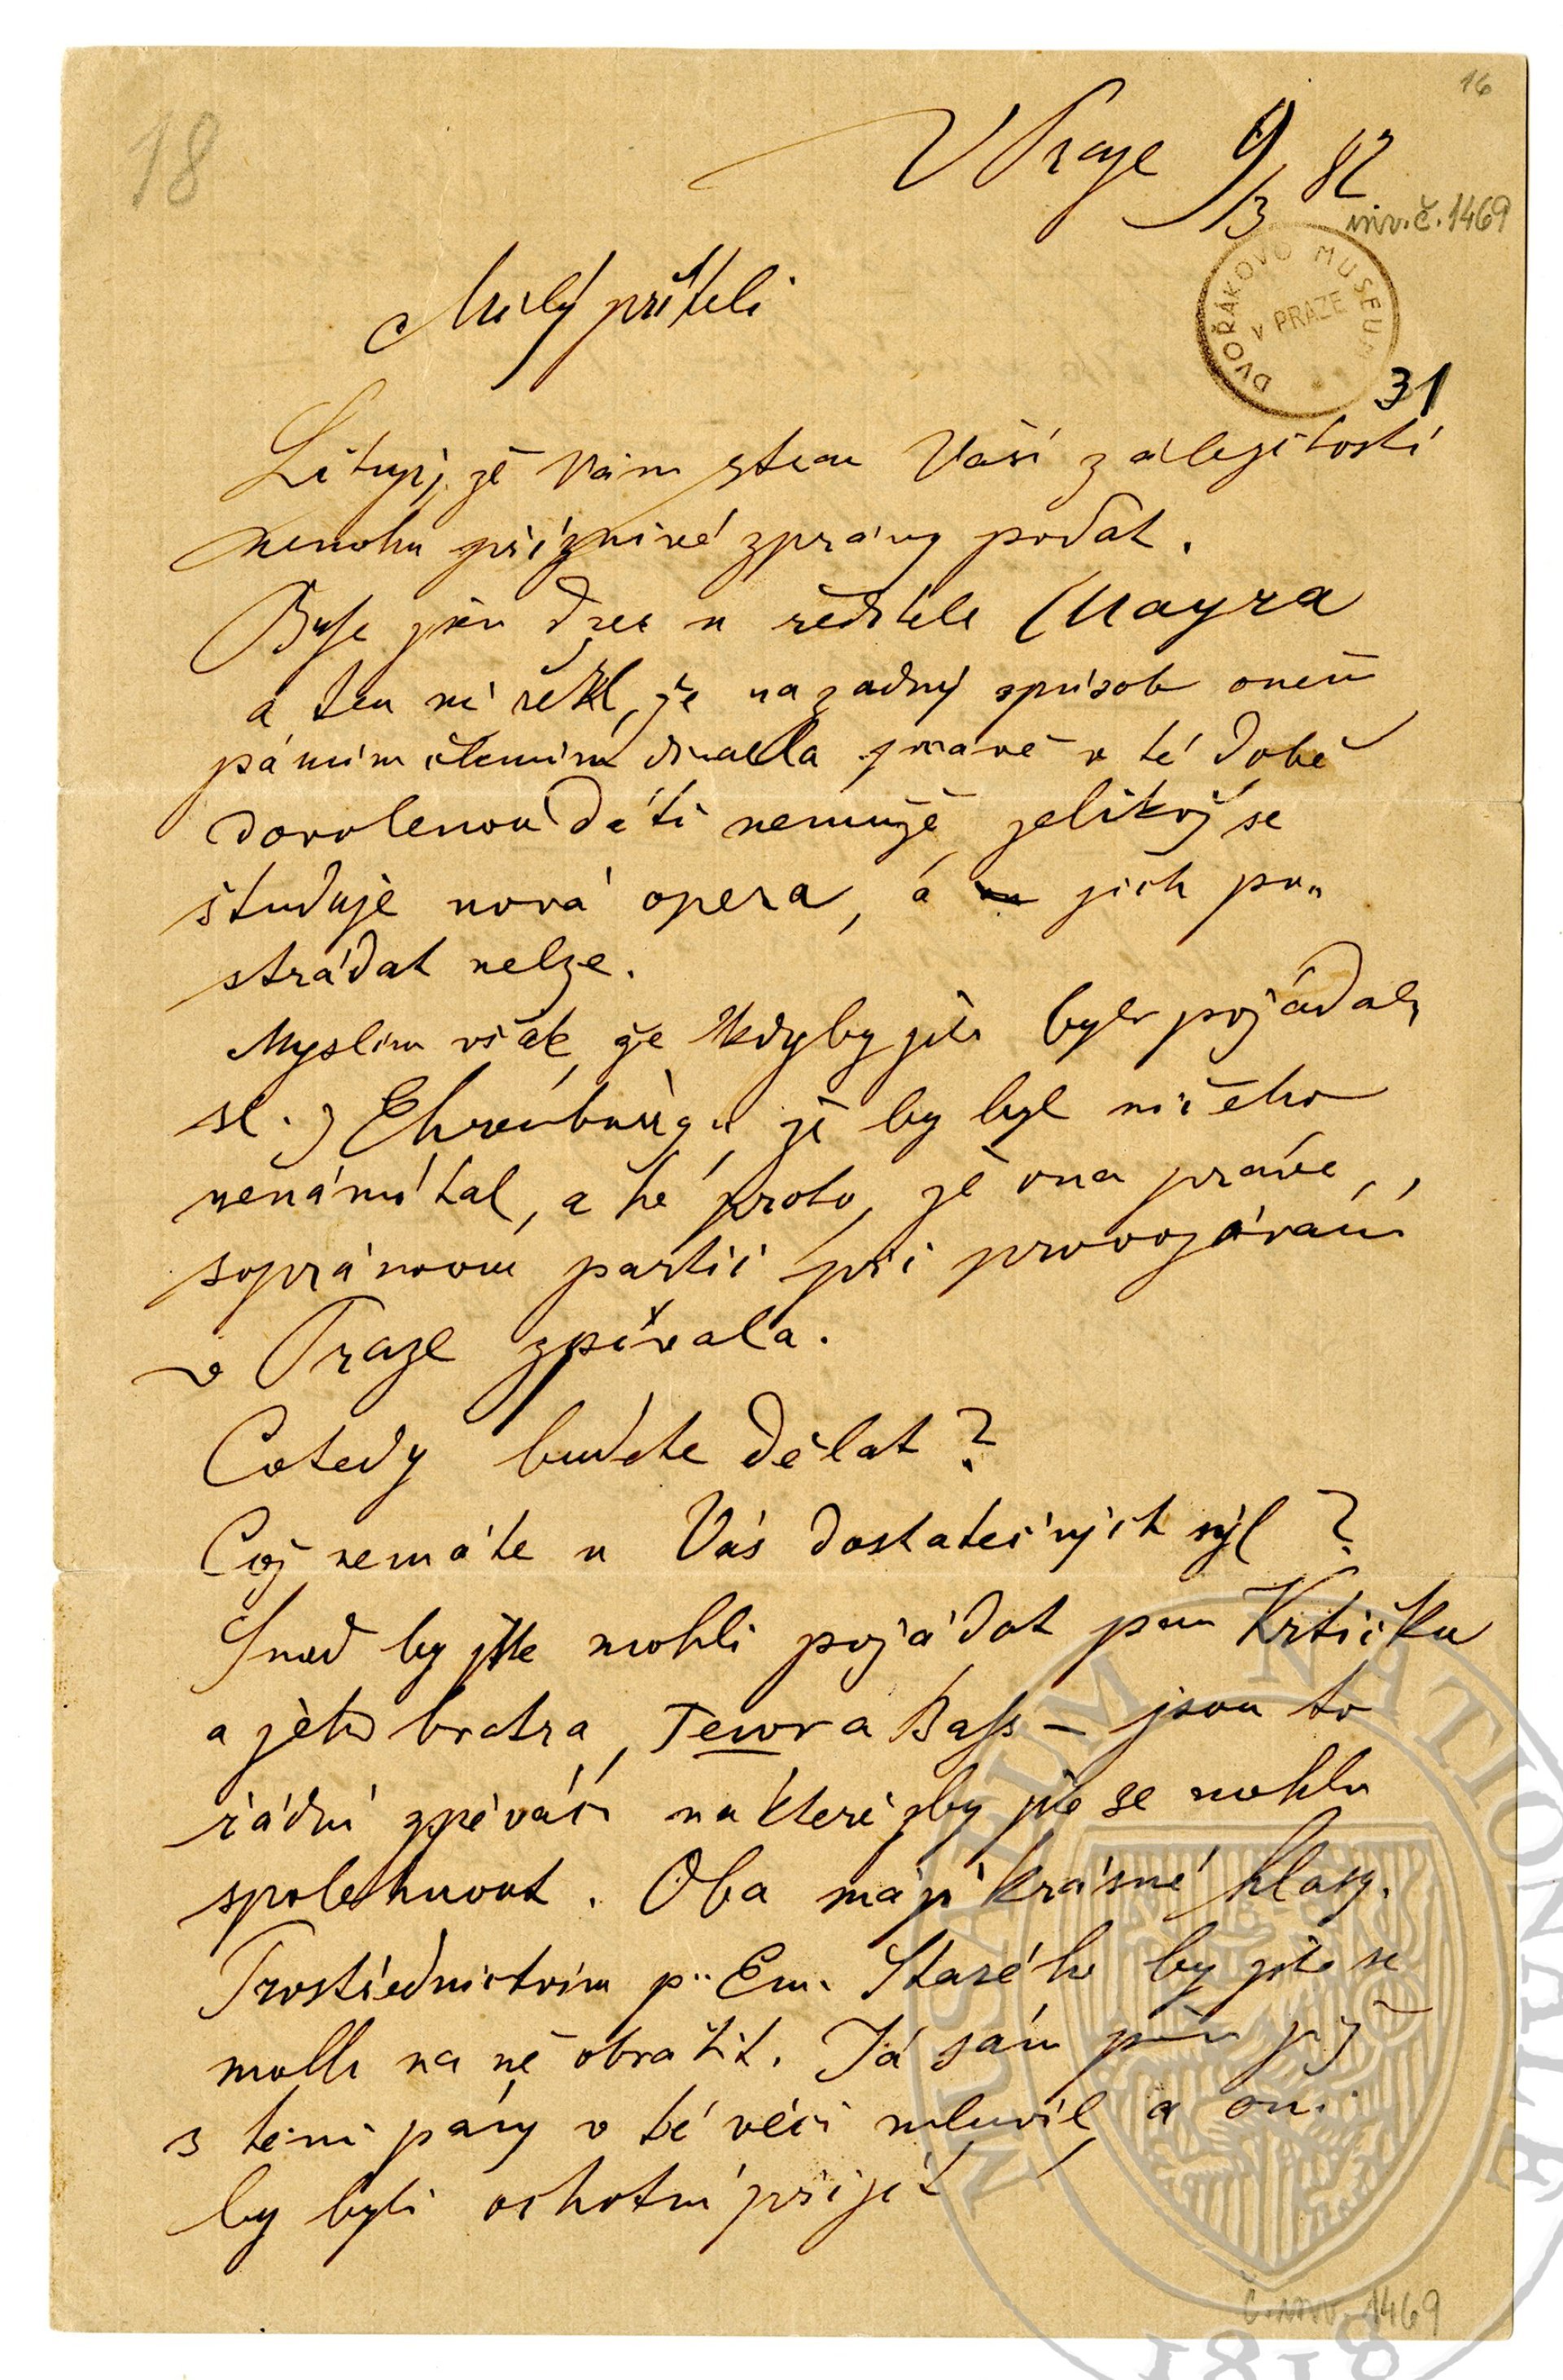 16
18
V Praze 9/3 82
inv. č. 1469
DVOŘAKOVO MUSEUM
V PRAZE
Milý příteli
31
Lituji, že Vám stran Vaší záležitosti
nemohu příznivé zprávy podat.
Byl jsem dnes u ředitele Mayra
a ten mi řekl, že na žadný spúsob oněm
pánům členům divadla právě v té době
dovolenou dáti nemůže, jelikož se
študuje nová opera, a jich po„
strádat nelze.
Myslím však, že kdyby jste byli požádali
sl. z Ehrenbergů, že by byl ničeho
nenámítal, a to proto, že ona práve,
sopránovou partii při provozování
v Praze zpívala.
Co tedy budete dělat?
Což nemáte u Vás dostatečných sýl?
Snad by jste mohli požádat pana Krtičku
a jeho bratra, Tenor a Bass – jsou to
řádní zpěváci na které by jste se mohli
spolehnout. Oba mají krásné hlasy.
Prostřednictvím p. Em. Starého by jste se
mohli na ně obrátit. Já sám jsem již
s těmi pány v té věci mluvil, a oni
by byli ochotni přijet
Č. inv. 1469
MUSAEUM NATIONALE
1818